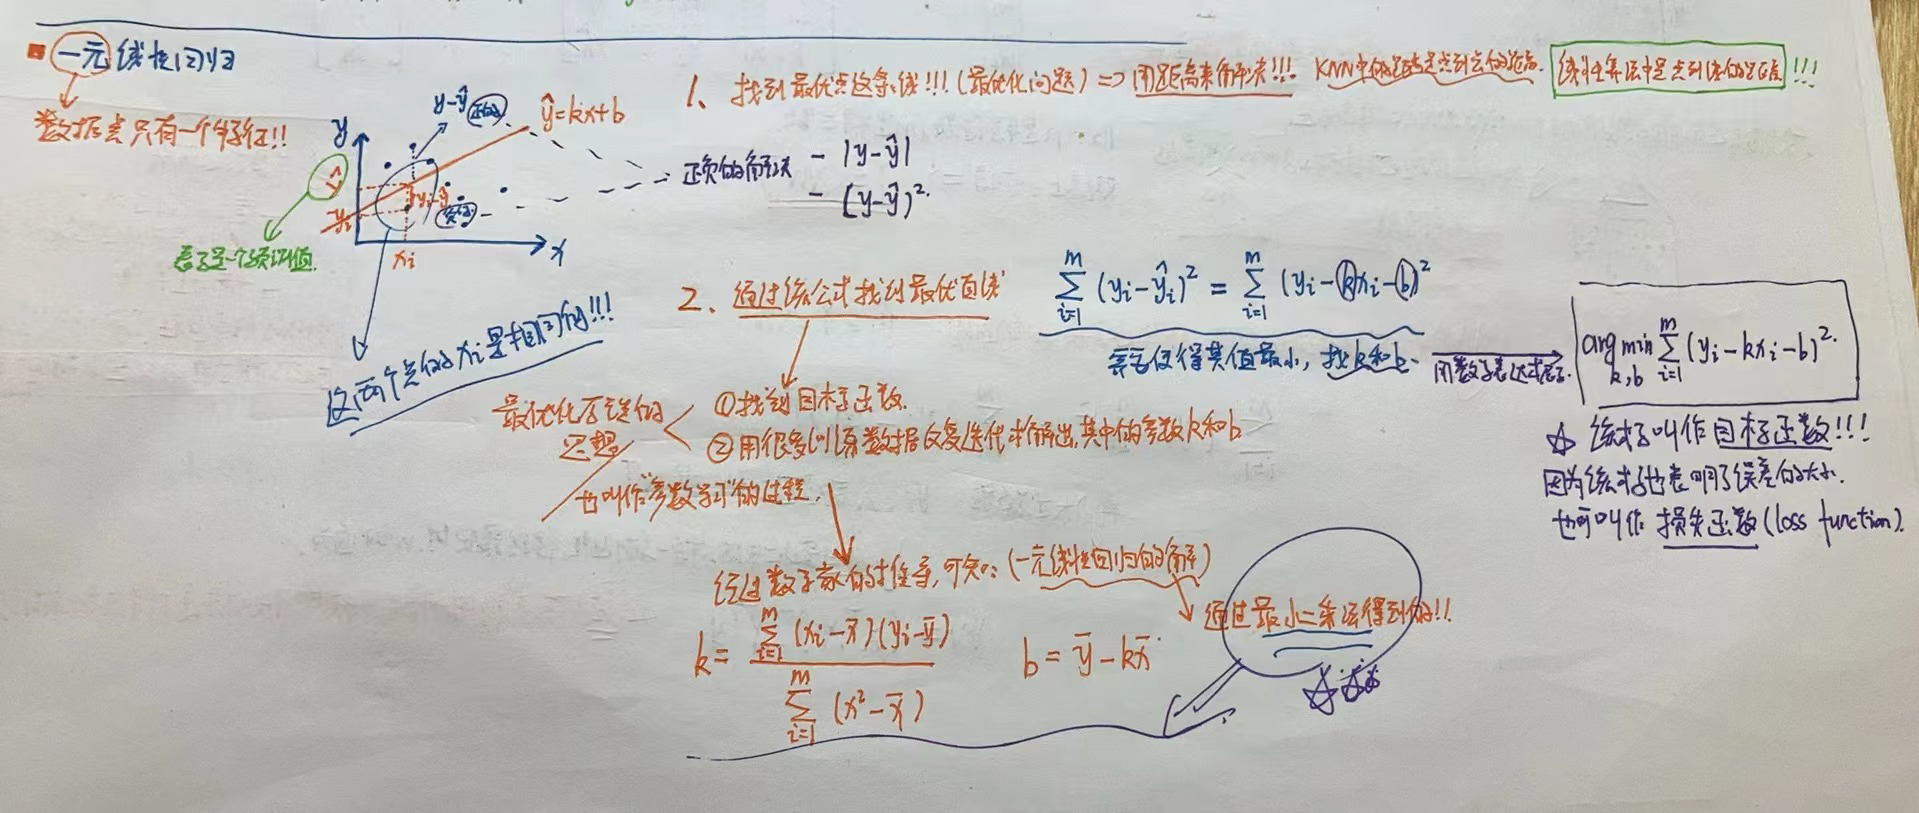 一元线性回归
数据点只有一个特征!!
y
ŷ
yi
xi
x
y-ŷ 正的
ŷ=kx+b
yi-ŷ
负的
表示是一个预测值
这两个点的xi是相同的!!!
1、找到最优点这条线!!!(最优化问题) => 用距离来解决!!! KNN中的距离是点到点的距离. 线性算法中是点到线的距离!!!
正负的解决 - |y-ŷ|
- (y-ŷ)².
2、通过该公式找到最优直线
∑_{i=1}^{m} (yi-ŷi)² = ∑_{i=1}^{m} (yi-kxi-b)²
要使得其值最小, 找k和b. 用数学表达式表示.
arg min_{k,b} ∑_{i=1}^{m} (yi-kxi-b)².
☆ 该式子叫作目标函数!!!
因为该式子也表明了误差的大小.
也可叫作 损失函数(loss function).
最优化方法的思想
①找到目标函数.
②用很多训练数据反复迭代求解出其中的参数k和b
也叫作“参数学习”的过程.
经过数学家的推导,可知: (一元线性回归的解)
通过最小二乘法得到的!!
k= ∑_{i=1}^{m} (xi-x̄)(yi-ȳ) / ∑_{i=1}^{m} (x²-x̄)
b=ȳ-kx̄